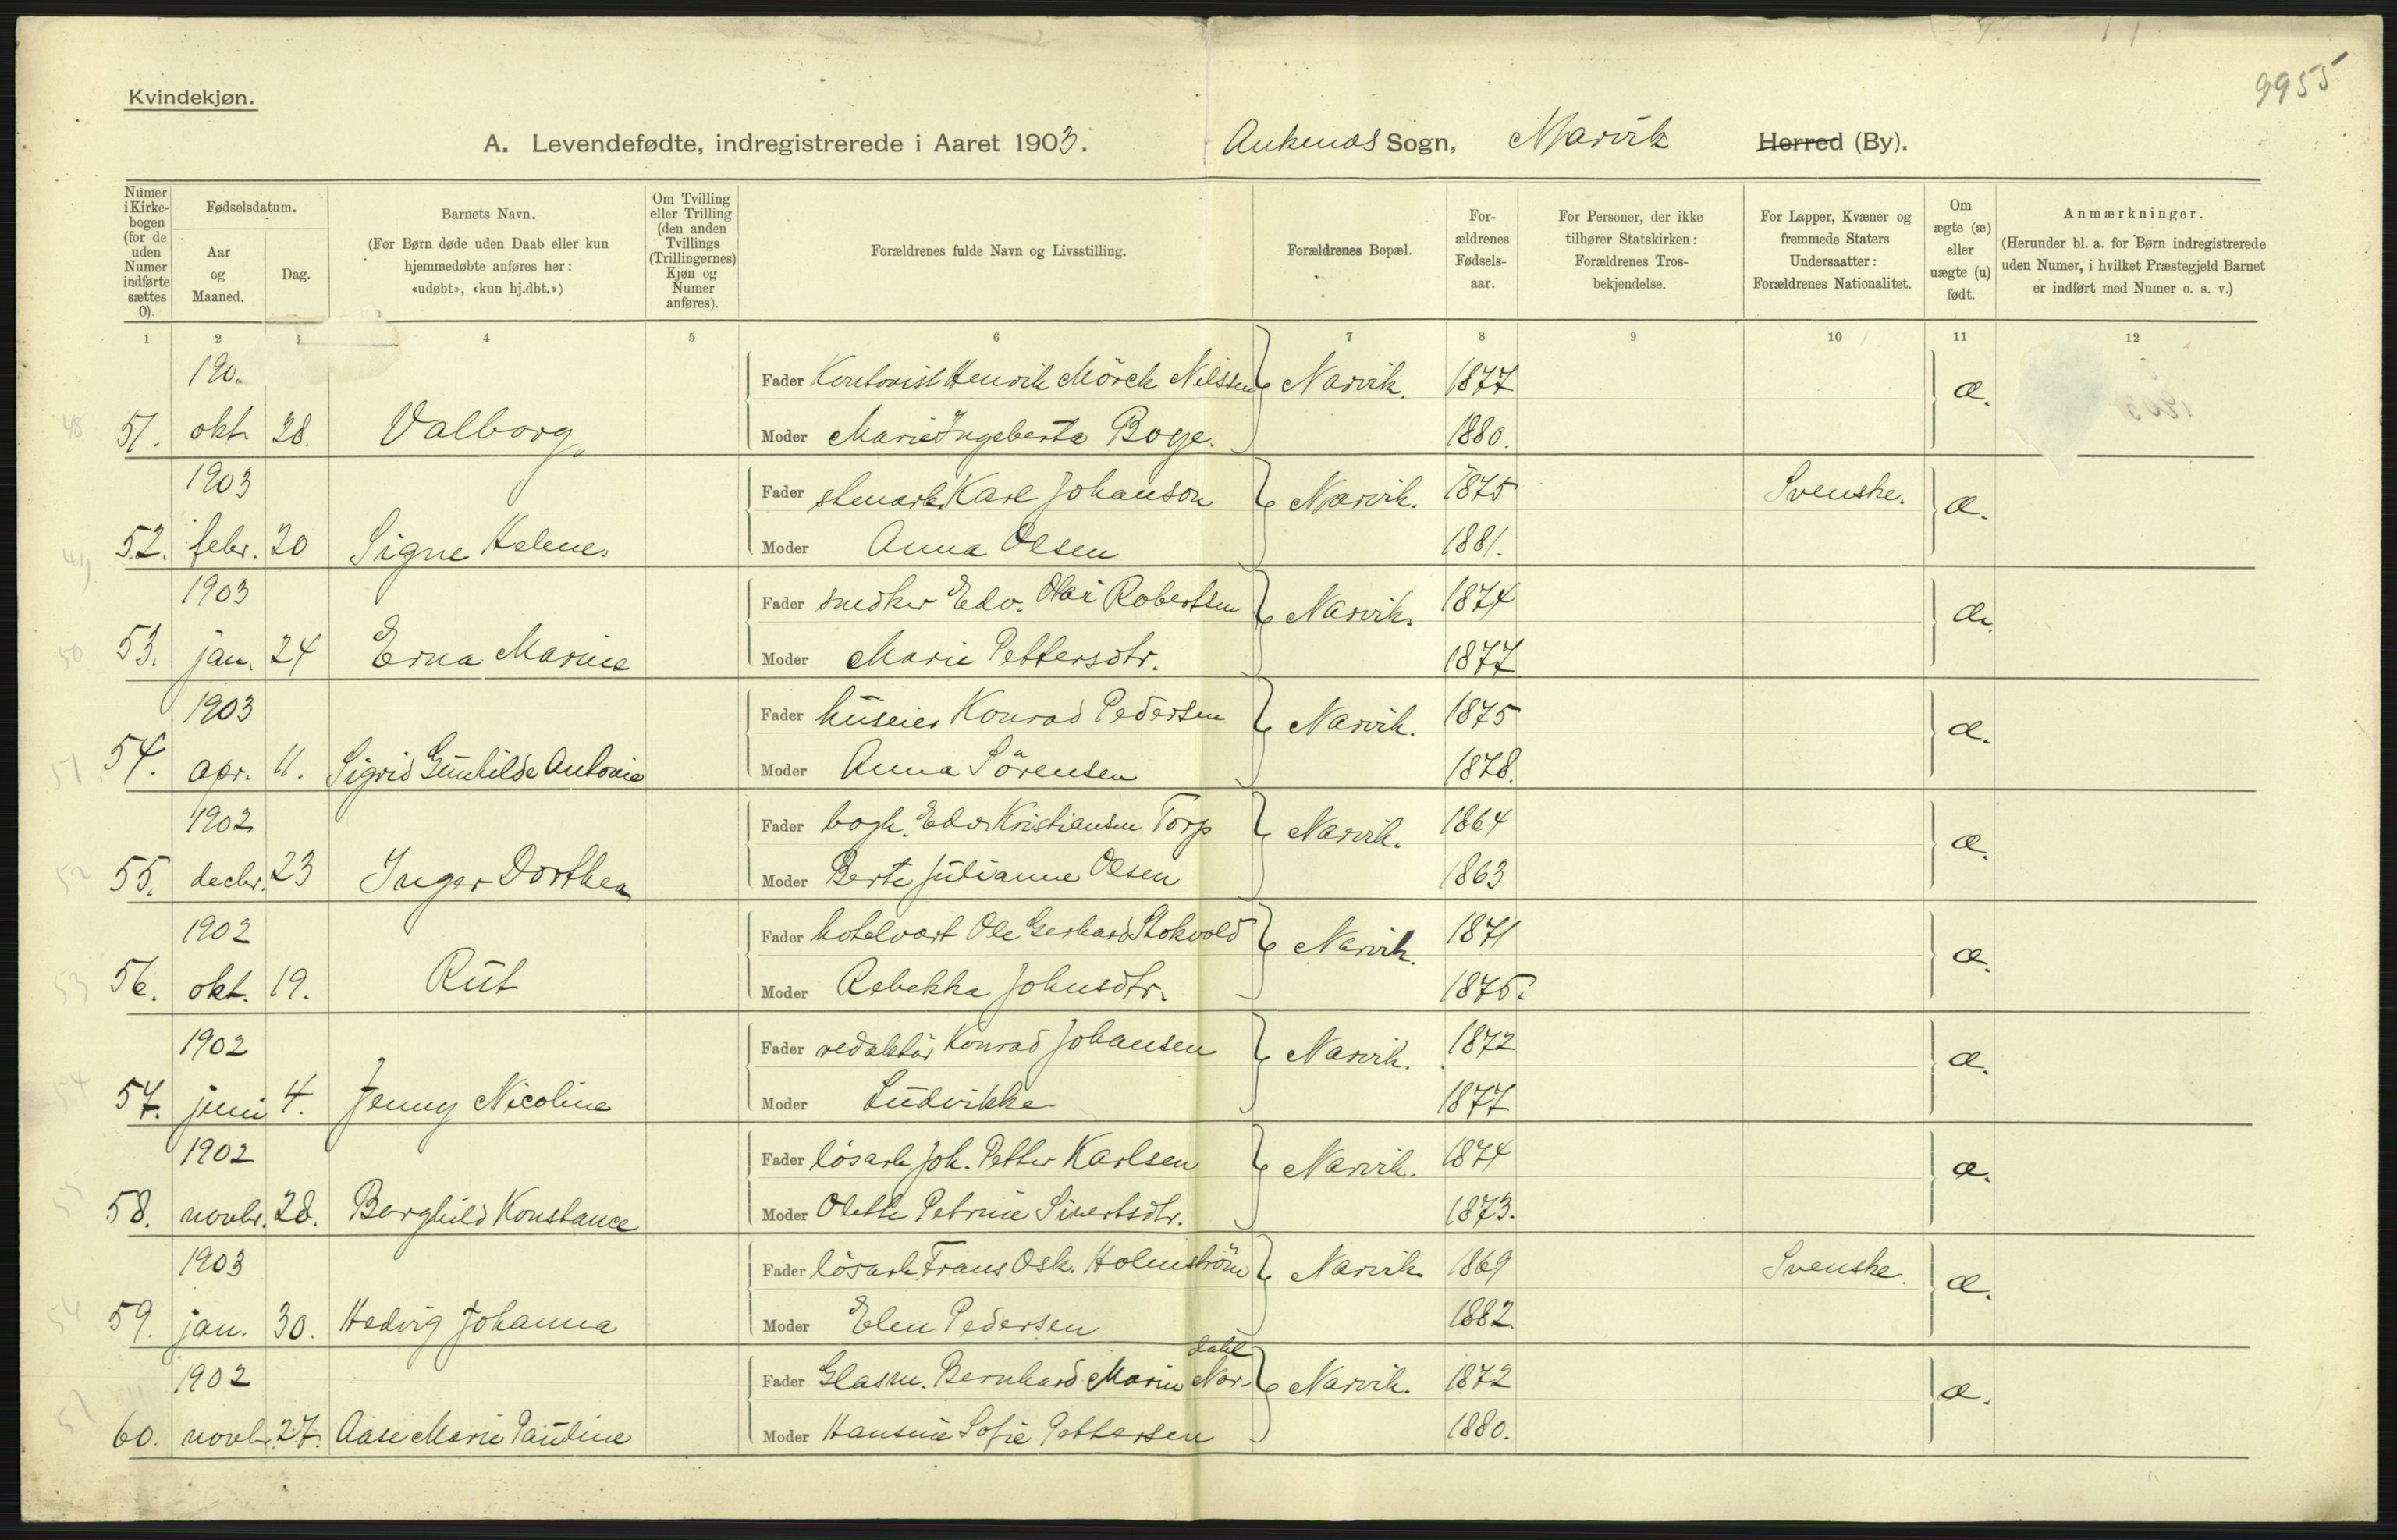 9955
Kvindekjøn.
A. Levendefødte, indregistrerede i Aaret 1903. Ankenæs Sogn, Narvik Herred (By).
Numer i Kirkebogen (for de uden Numer indførte sættes 0).
Fødselsdatum.
Aar og Maaned.
Dag.
Barnets Navn.
(For Børn døde uden Daab eller kun hjemmedøbte anføres her: «udøbt», «kun hj.dbt.»)
Om Tvilling eller Trilling (den anden Tvillings (Trillingernes) Kjøn og Numer anføres).
Forældrenes fulde Navn og Livsstilling.
Forældrenes Bopæl.
Forældrenes Fødselsaar.
For Personer, der ikke tilhører Statskirken: Forældrenes Trosbekjendelse.
For Lapper, Kvæner og fremmede Staters Undersaatter: Forældrenes Nationalitet.
Om ægte (æ) eller uægte (u) født.
Anmærkninger.
(Herunder bl. a. for Børn indregistrerede uden Numer, i hvilket Præstegjeld Barnet er indført med Numer o. s. v.)
1 2 4 5 6 7 8 9 10 11 12
190. Fader Kontorist Henrik Mörck Nilssen Narvik. 1877 æ.
48 51. okt. 28. Valborg, Moder Marie Ingeberta Boye. 1880.
1903 Fader stenarb. Karl Johanson Narvik. 1875 Svenske. æ.
49 52. febr. 20 Signe Helene. Moder Anna Olsen 1881.
1903 Fader snedker Edv. Olai Robertsen Narvik. 1874 æ.
50 53. jan. 24 Erna Marine Moder Marie Pettersdtr. 1877
1903 Fader huseier Konrad Pedersen Narvik. 1875 æ.
51 54. apr. 11. Sigrid Gunhilde Antonie Moder Anna Sörensen 1878.
1902 Fader bogh. Edv. Kristiansen Torp Narvik. 1864 æ.
52 55. decbr. 23 Inger Dorthea Moder Berte Julianne Olsen 1863
1902 Fader hotelvært Ole Gerhard Stokvold Narvik. 1871 æ.
53 56. okt. 19. Rut Moder Rebekka Johnsdtr. 1875.
1902 Fader redaktör Konrad Johansen Narvik. 1872 æ.
54 57. juni 4. Jenny Nicoline Moder Ludvikke 1877
1902 Fader lösarb. Joh. Petter Karlsen Narvik. 1874 æ.
55 58. novbr. 28. Borghild Konstance Moder Olette Petrine Sivertsdtr. 1873.
1903 Fader lösarb. Frans Osk. Holmström Narvik. 1869 Svenske. æ.
59. jan. 30. Hedvig Johanna Moder Elen Pedersen 1882
dahl
1902 Fader Glasm. Bernhard Marin Nor- Narvik. 1872 æ.
60. novbr. 27. Aase Marie Pauline Moder Hansine Sofie Pettersen 1880.